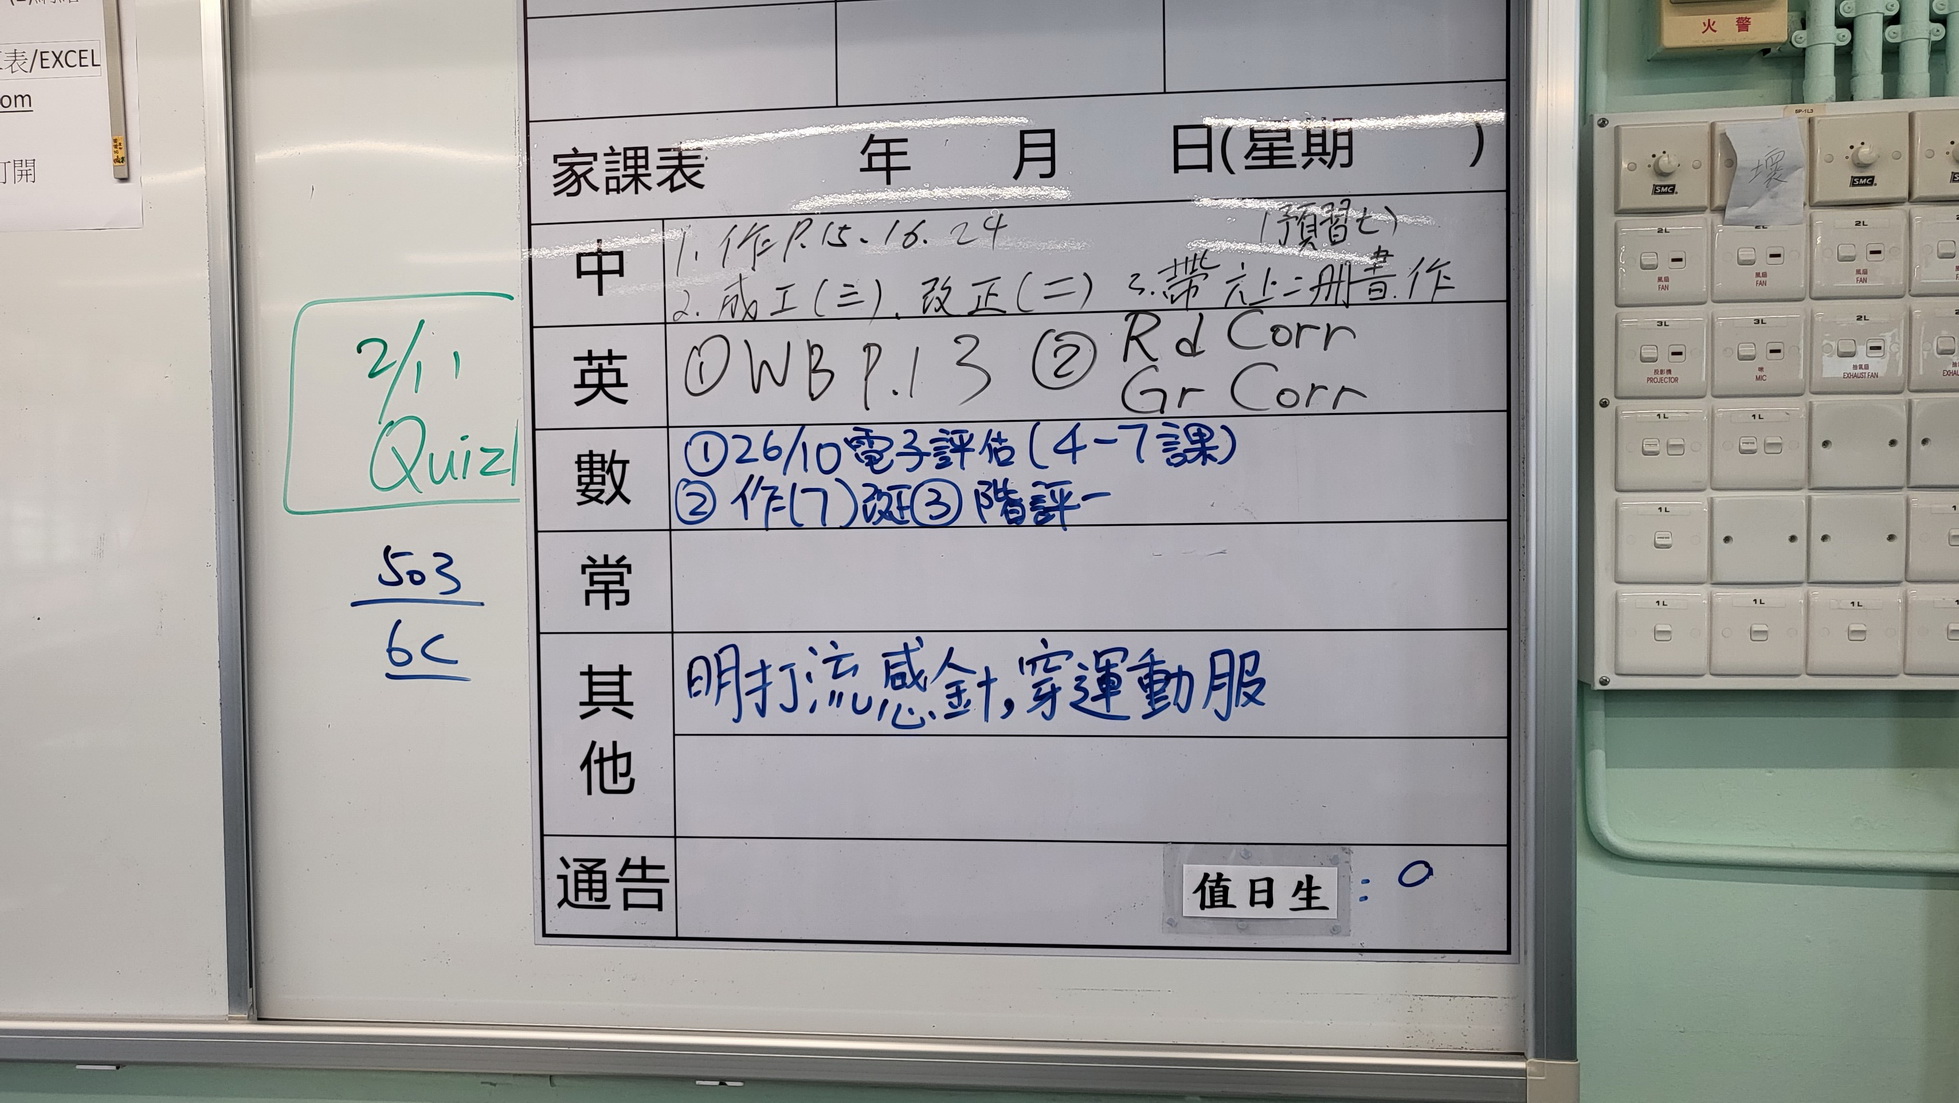 表/EXCEL
om
打開
火警
家課表 年 月 日(星期 )
中
1. 作P.15、16、24 (預習七)
2. 成工(三)、改正(二) 3.帶六上二冊書、作
英
①WB P.13 ② Rd Corr
Gr Corr
數
①26/10電子評估(4-7課)
② 作(7)改正③ 階評一
常
其他
明打流感針,穿運動服
通告
值日生 : 0
2/11
Quiz1
503
6C
壞
SMC
SMC
2L
風扇
FAN
2L
風扇
FAN
2L
風扇
FAN
3L
投影機
PROJECTOR
3L
咪
MIC
2L
抽氣扇
EXHAUST FAN
1L
1L
1L
1L
1L
1L